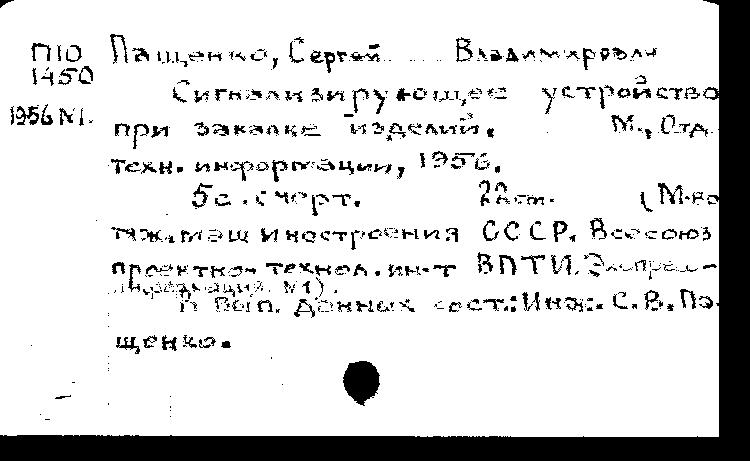 П10 Пащенко, Сергей Владимирович
1450
Сигнализирующее устройство
1956 №1.
при закалке изделий. М., Отд.
техн. информации, 1956.
5 с. с черт. 22 см. (М-во
тяж. машиностроения СССР. Всесоюз
проектно-технол. ин-т ВПТИ. Экспресс-
информация. №1).
В вып. данных сост.: Инж. С. В. Па-
щенко.